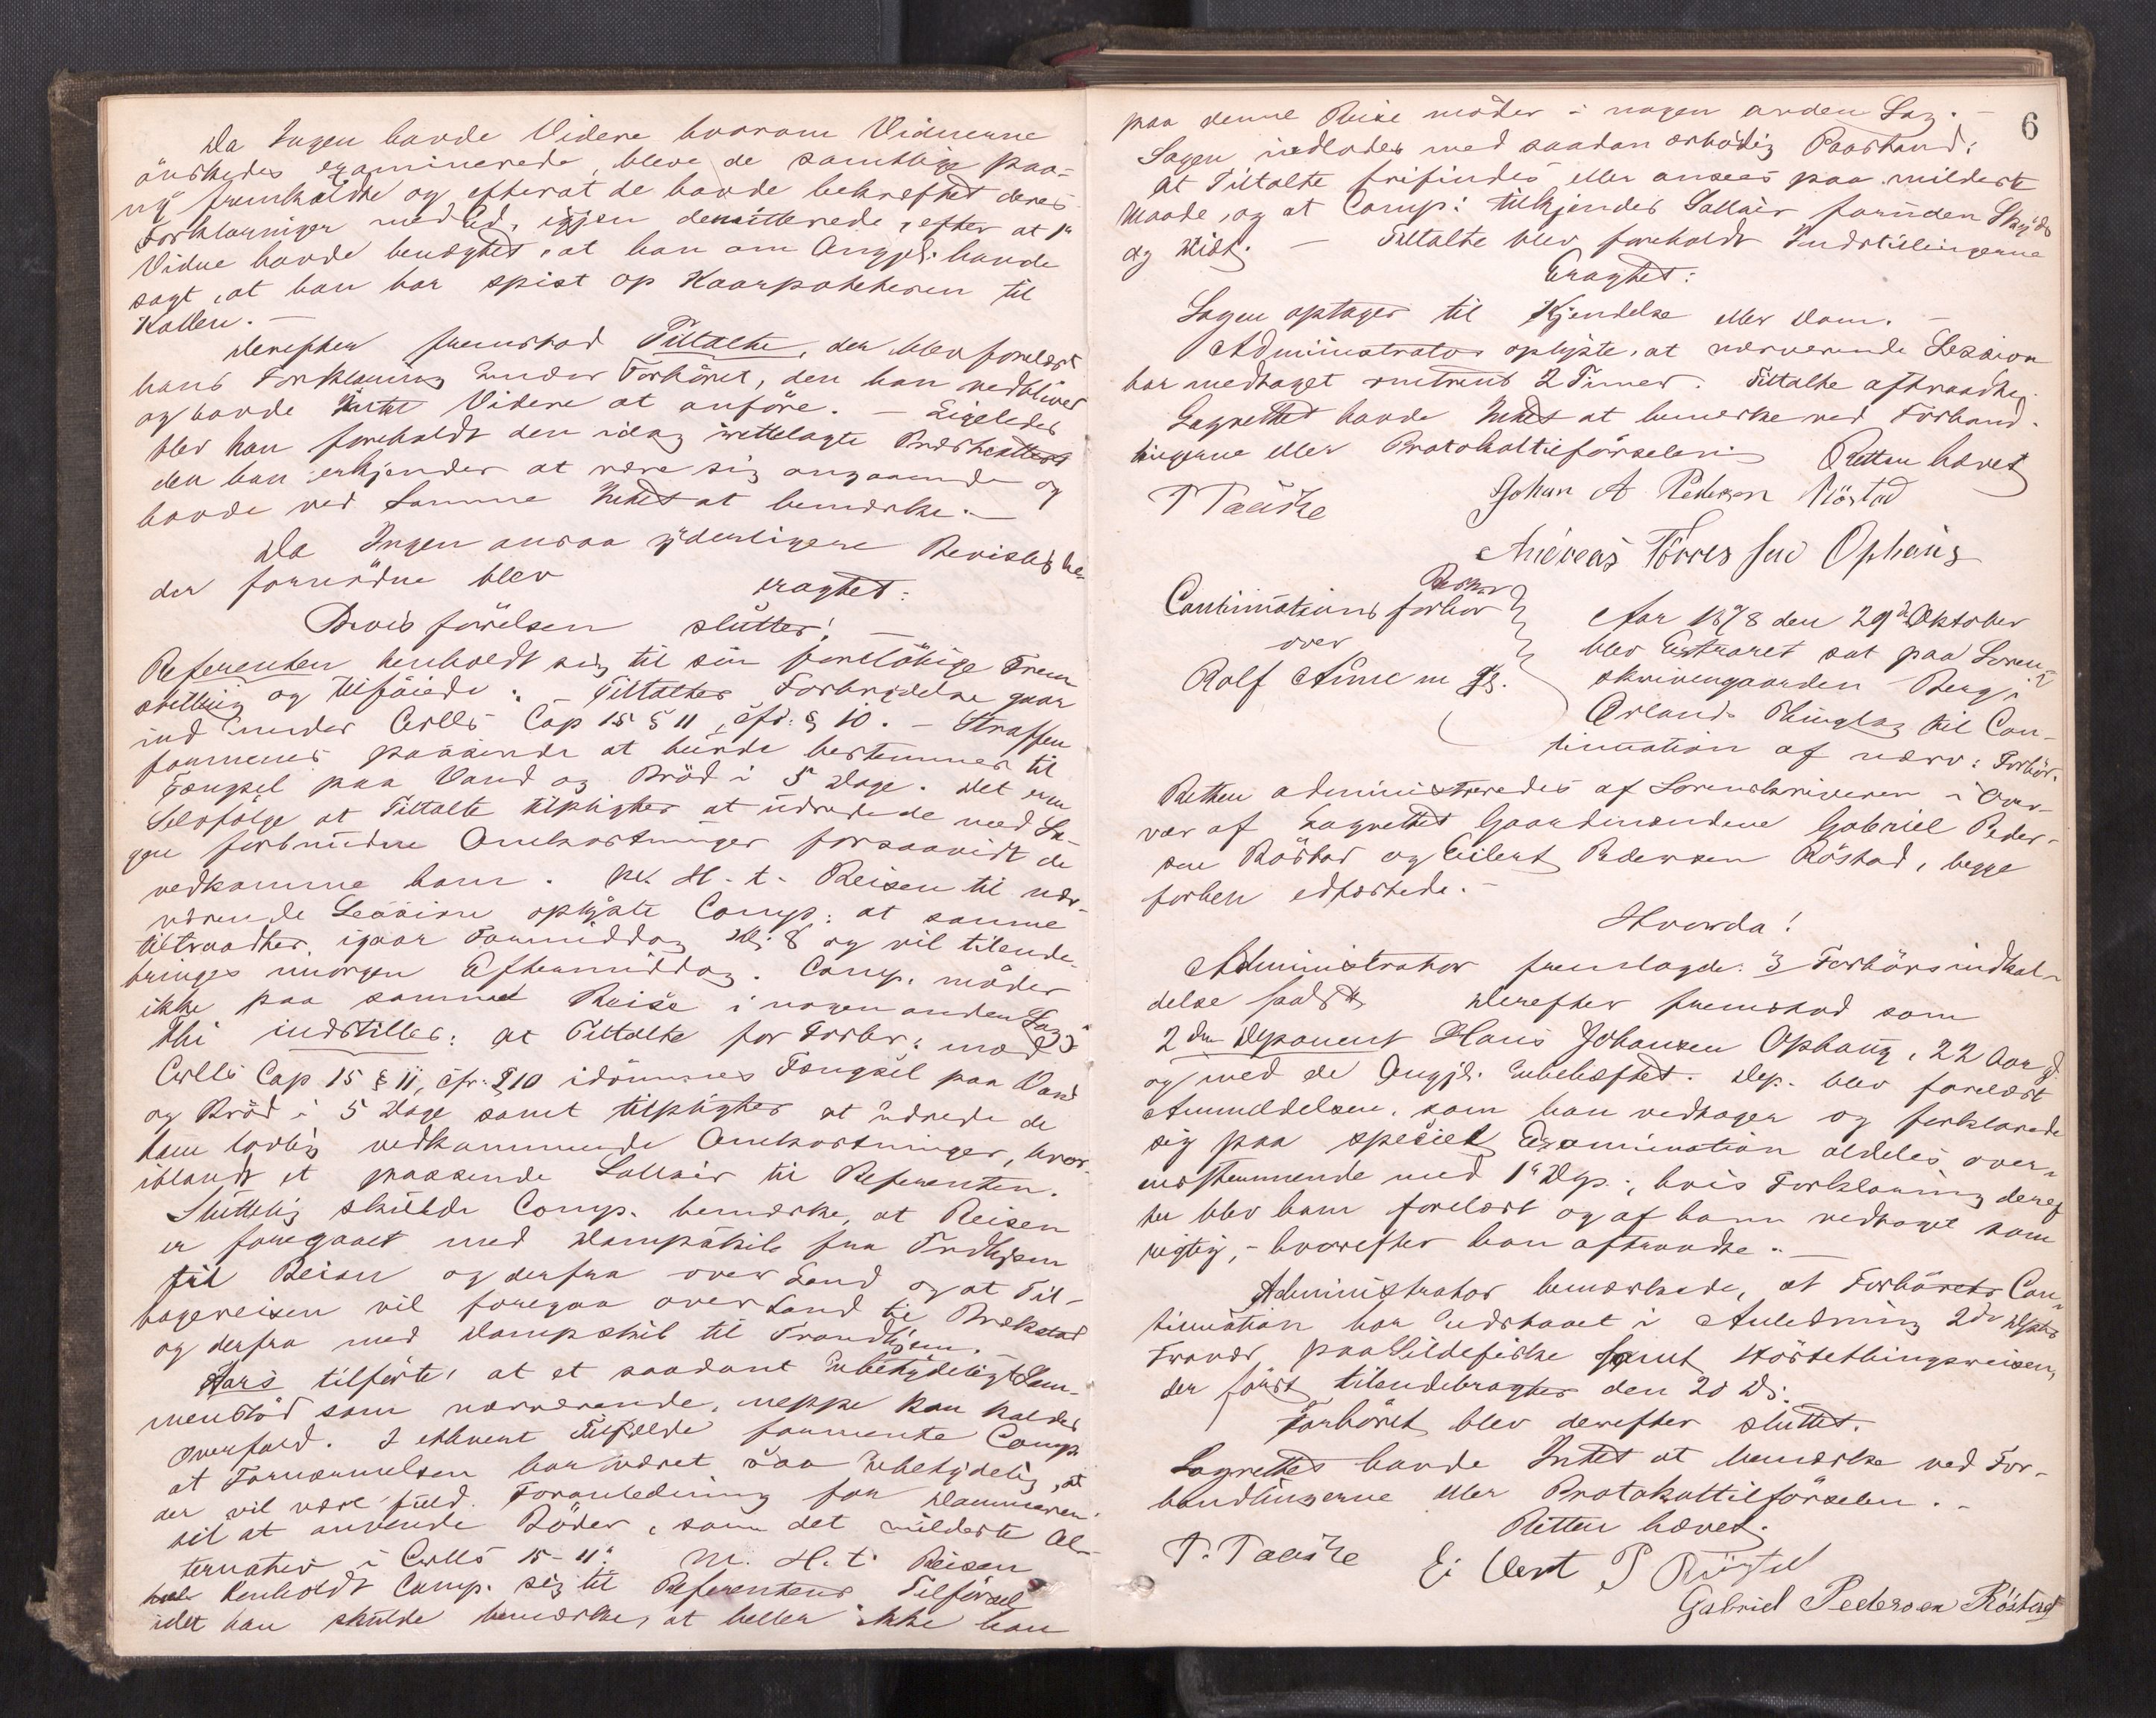 Da Ingen havde Videre hvorom Vidnerne
ønskedes examinerede, bleve de samtlige paa-
ny fremkaldte og efterat de havde bekræftet deres
Forklaringer med Ed, igjen demitterede, efter at 1ste
Vidne havde benægtet, at han om Angjl. havde
sagt, at han har spist op Kaarpotheren til
Kallen. —
Derefter fremstod Tiltalte, der blev forelæst
hans Forklaring under Forhöret, den han vedbliver
og havde Intet Videre at anföre. — Ligeledes
blev han foreholdt den idag irettelagte Præsteattest
den han erkjender at være sig angaaende og
havde ved Samme Intet at bemærke. —
Da Ingen ansaa yderligere Bevisligheder
der fornødne blev eragtet:
Bevisförelsen slutter! —
Referenten henholdt sig til sin foreløbige Frem
stilling og tilföiede: — Tiltaltes Forbrydelse gaar
ind under Crlls Cap 15 § 11, cfr. § 10. — Straffen
formenes passende at burde bestemmes til
Fængsel paa Vand og Bröd i 5 Dage. Det er en
Selvfølge at Tiltalte tilpligtes at udrede de med Sa-
gen forbundne Omkostninger forsaavidt de
vedkomme ham. M. H. t. Reisen til nær-
værende Session oplyste Comp: at samme
tiltraadtes igaar Formiddag Kl: 8 og vil tilende-
bringes imorgen Eftermiddag. Comp. møder
ikke paa samme Reise i nogen anden Sag.
Thi indstilles: at Tiltalte for Forbr: mod
Crlls Cap 15 § 11, cfr: § 10 idömmes Fængsel paa Vand
og Bröd i 5 Dage samt tilpligtes at udrede de
ham lovlig vedkommende Omkostninger, hvor-
iblandt et passende Sallair til Referenten.
Sluttelig skulde Comp. bemærke, at Reisen
er foregaaet med Dampskib fra Trdhjem
til Beian og derfra over Land og at Til-
bagereisen vil foregaa over Land til Brækstad
og derfra med Dampskib til Trondhjem.
Fors tilførte, at et saadant Ubetydeligt Sam-
menstöd som nærværende, neppe kan kaldes
Overfald. I ethvert Tilfælde formente Comp
at Fornærmelsen har været saa ubetydelig, at
der vil være fuld Foranledning for Dommeren
til at anvende Böder, som det mildeste Al-
ternativ i Crlls 15-11. M. H. t. Reisen
henholdt Comp. sig til Referentens Tilförsel
idet han skulde bemærke, at heller ikke han
6
paa denne Reise møder i nogen anden Sag. —
Sagen indlodes med saadan ærbødig Paastand:
At Tiltalte frifindes eller ansees paa mildeste
Maade, og at Comp: tilkjendes Sallair foruden Skyds
og Diæt. — Tiltalte blev foreholdt Indstillingerne
Eragtet:
Sagen optages til Kjendelse eller Dom. —
Administrator oplyste, at nærværende Session
har medtaget omtrent 2 Timer. Tiltalte aftraadte.
Lagrettet havde Intet at bemærke ved Forhand-
lingerne eller Protokoltilførselen Retten hævet
T Taaske
Johan A Pedersen Röstad
Andreas Törres sen Ophaug
Continuationsforhør
over
Rolf Arne m fl.
Aar 1878 den 29de Oktober
blev Extraret sat paa Soren-
skrivergaarden Berg i
Ørlands Thinglag til Con-
tinuation af nærv: Forhör.
Retten administreredes af Sorenskriveren i Over-
vær af Lagrettet Gaardmændene Gabriel Peder-
sen Röstad og Eilert Pedersen Röstad, begge
forhen edfæstede. —
Hvorda!
Administrator fremlagde: 3 Forhörsindkal-
delse Derefter fremstod som
2den Deponent Hans Johansen Ophaug, 22 Aar gl
og med de Angjl. Ubeslægtet. Dep. blev forelæst
Anmeldelsen, som han vedtager og forklarede
sig paa speciel Examination aldeles over-
ensstemmende med 1ste Dep., hvis Forklaring deref-
ter blev ham forelæst og af ham vedtaget som
rigtig, — hvorefter han aftraadte. —
Administrator bemærkede, at Forhörets Con-
tinuation har Udstaaet i Anledning 2den Depts
Fravær paa Sildefiske samt Höstethingsreisen,
der først tilendebragtes den 20 ds.
Forhöret blev derefter sluttet.
Lagrettet havde Intet at bemærke ved For-
handlingerne eller Protokoltilförselen. —
Retten hævet.
T. Taaske
Ei lert P Röstad
Gabriel Pedersen Röstad